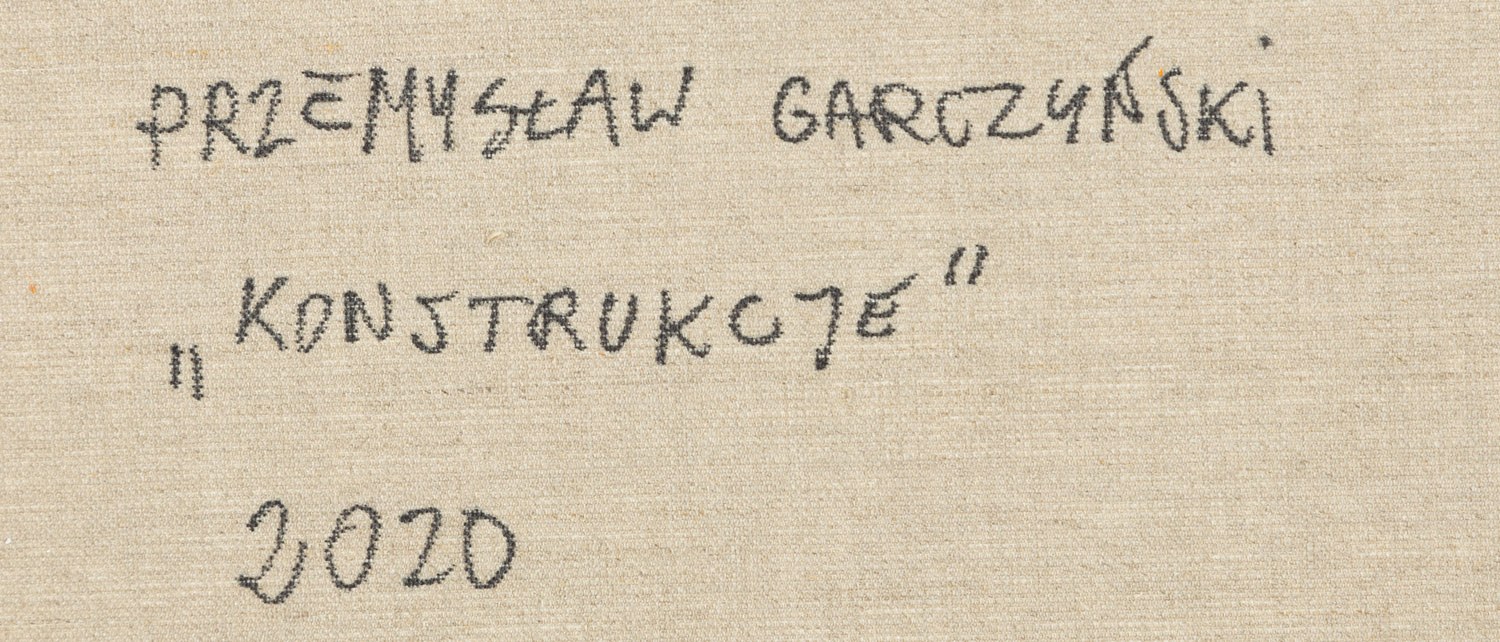 PRZEMYSŁAW GARCZYŃSKi
„KONSTRUKCJE"
2020